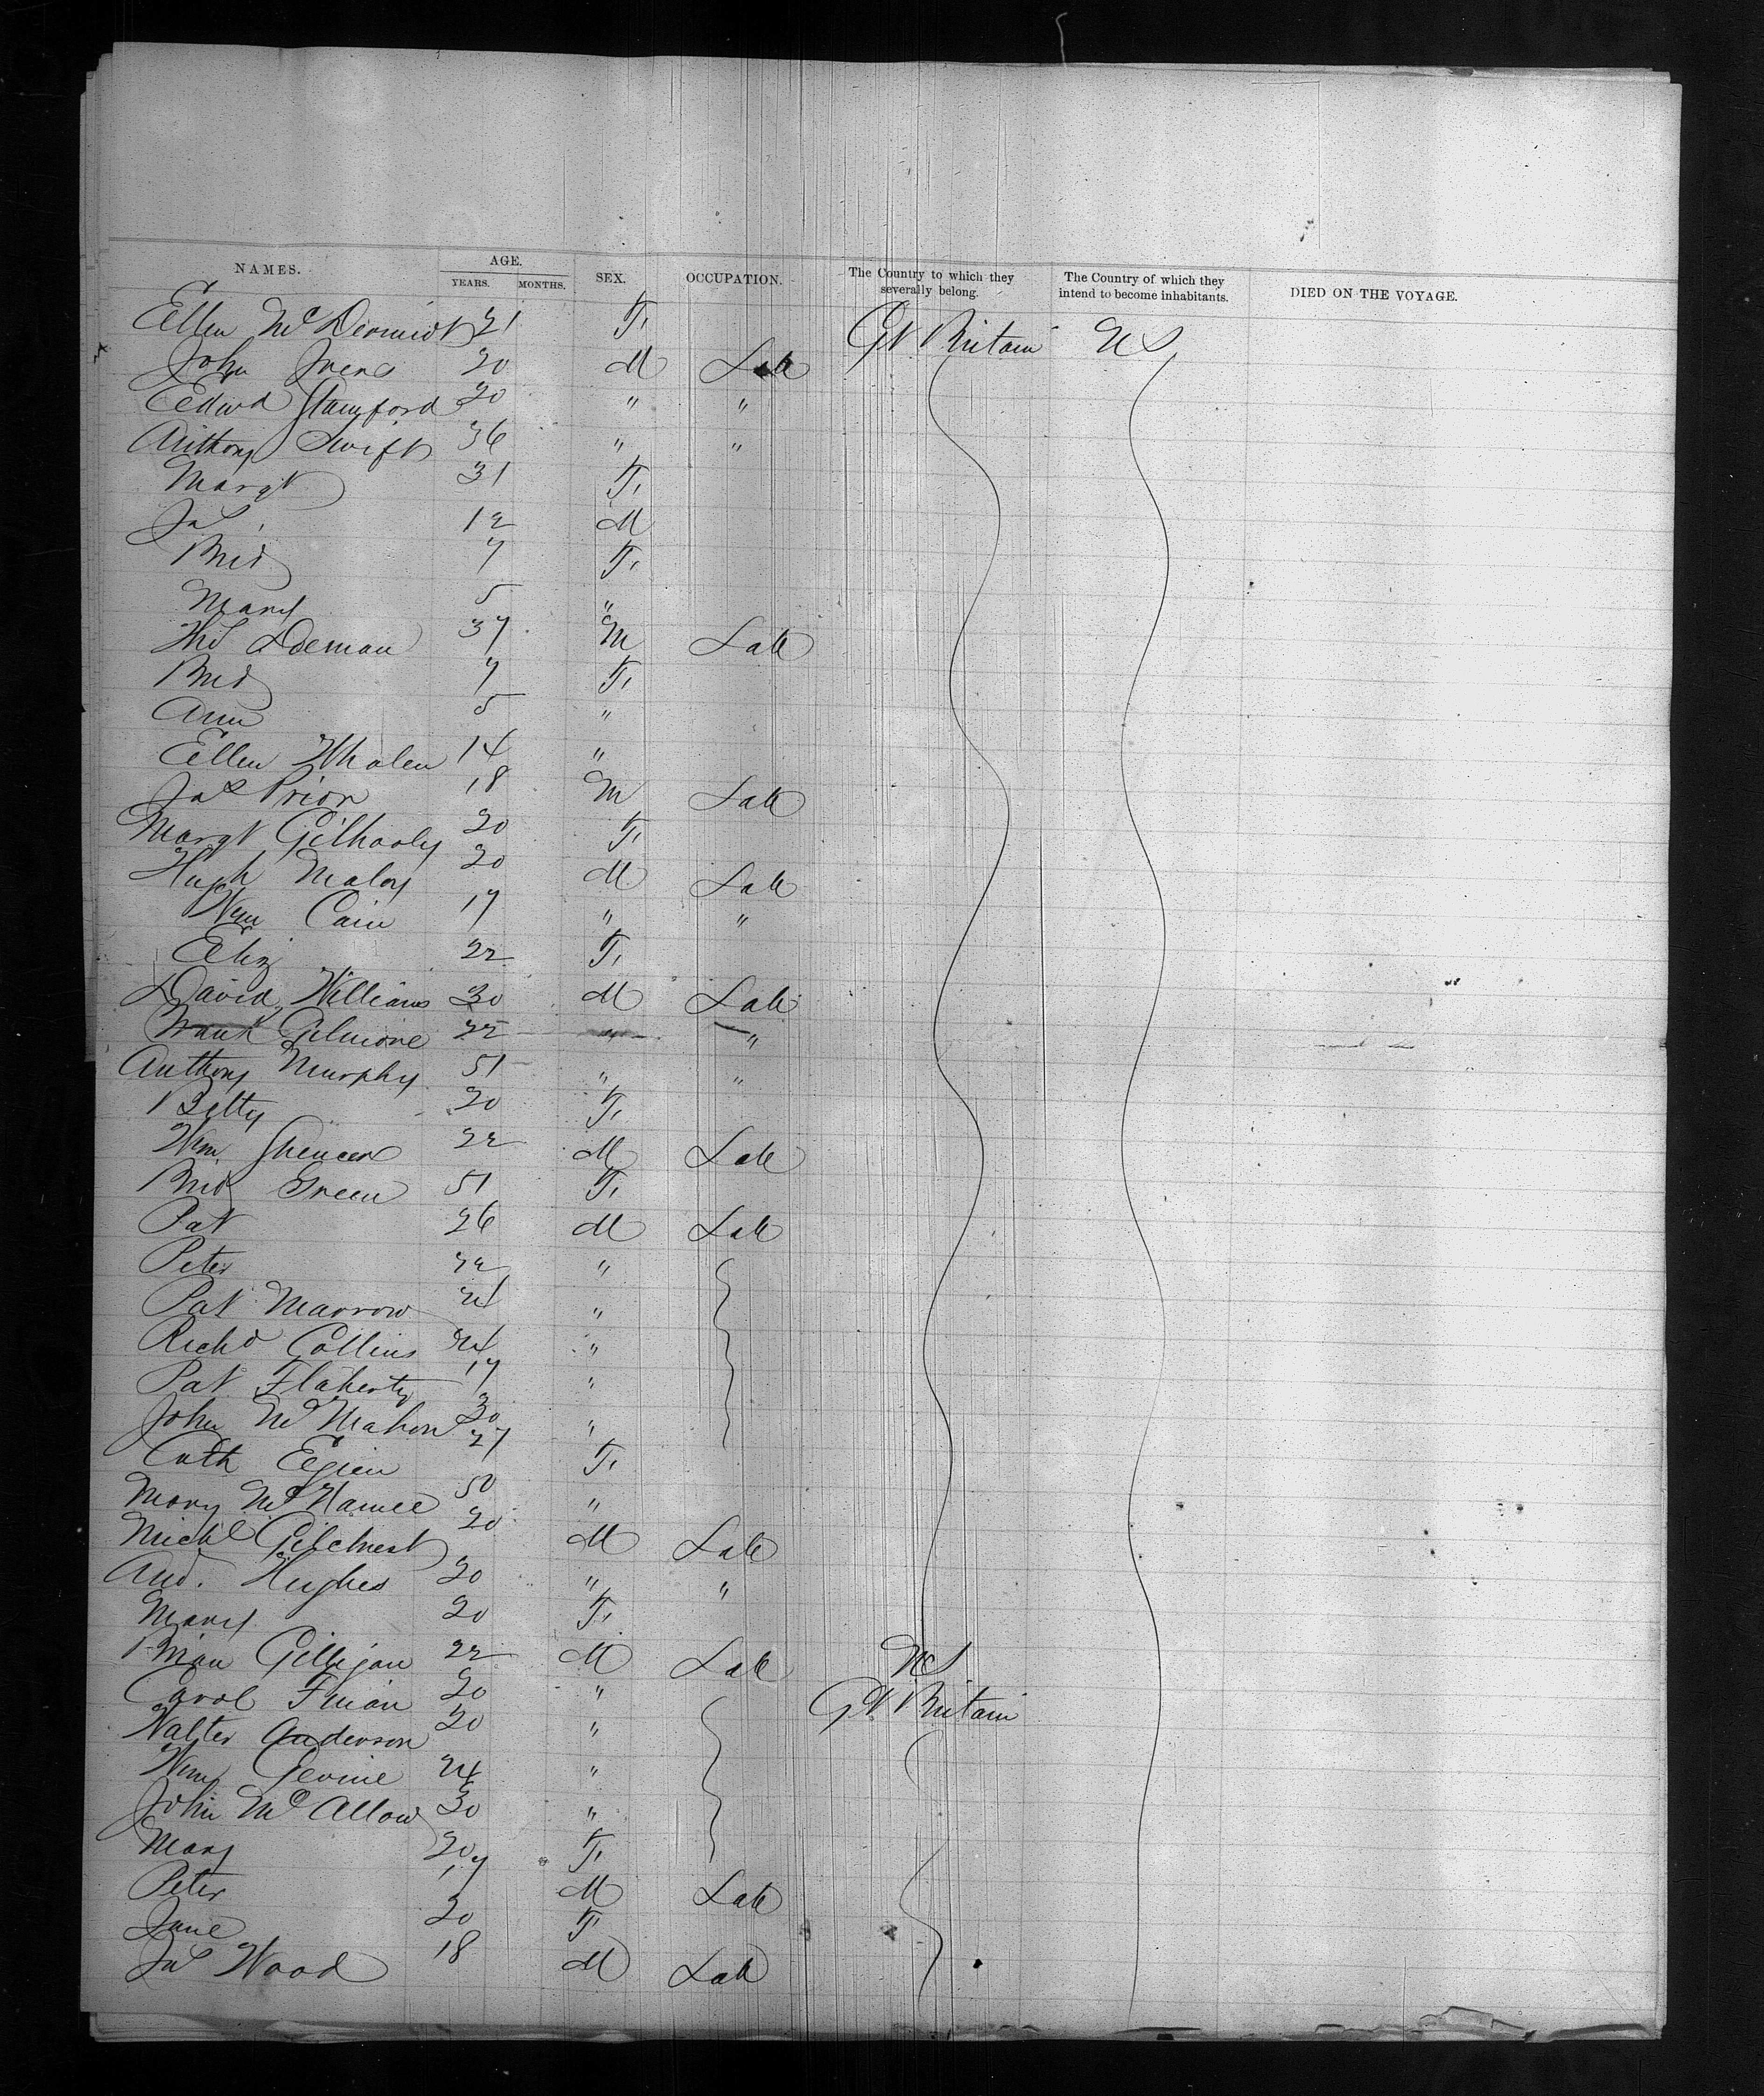 NAMES. AGE. YEARS. MONTHS. SEX. OCCUPATION. The Country to which they severally belong. The Country of which they intend to become inhabitants. DIED ON THE VOYAGE.
Ellen McDermidt 21 F. Gt Britain US
John 20 M Lab
Edwd Stamford 20 " "
Anthony Swift 36 " "
Margt 31 F.
Jas. 12 M
Brid 7 F.
Mary 5 "
Thos 37 M Lab
Brid 7 F.
Ann 5 "
Ellen Whalen 14 "
Jas Prior 18 M Lab
Margt Gilhooly 20 F.
Hugh Maloy 20 M Lab
Wm Cain 17 " "
Eliz 22 F.
David Williams 30 M Lab
Frank Gilmore 22 " "
Anthony Murphy 51 " "
Betty 20 F.
Wm Spencer 22 M Lab
Brid Green 51 F.
Pat 26 M Lab
Peter 22 "
Pat Marrow 24 "
Richd Collins 24 "
Pat Flaherty 17 "
John McMahon 30 "
Cath Egien 27 F.
Mary McNamee 50 "
Michl Gilchrest 20 M Lab
And. Hughes 20 " "
Mary 20 F.
Brian Gilligan 22 M Lab US
Carol 20 " Gt Britain
Walter Anderson 20 "
Wm Gevine 24 "
John McAllow 30 "
Mary 20 F.
Peter 17 M Lab
Jane 20 F
Jas Wood 18 M Lab